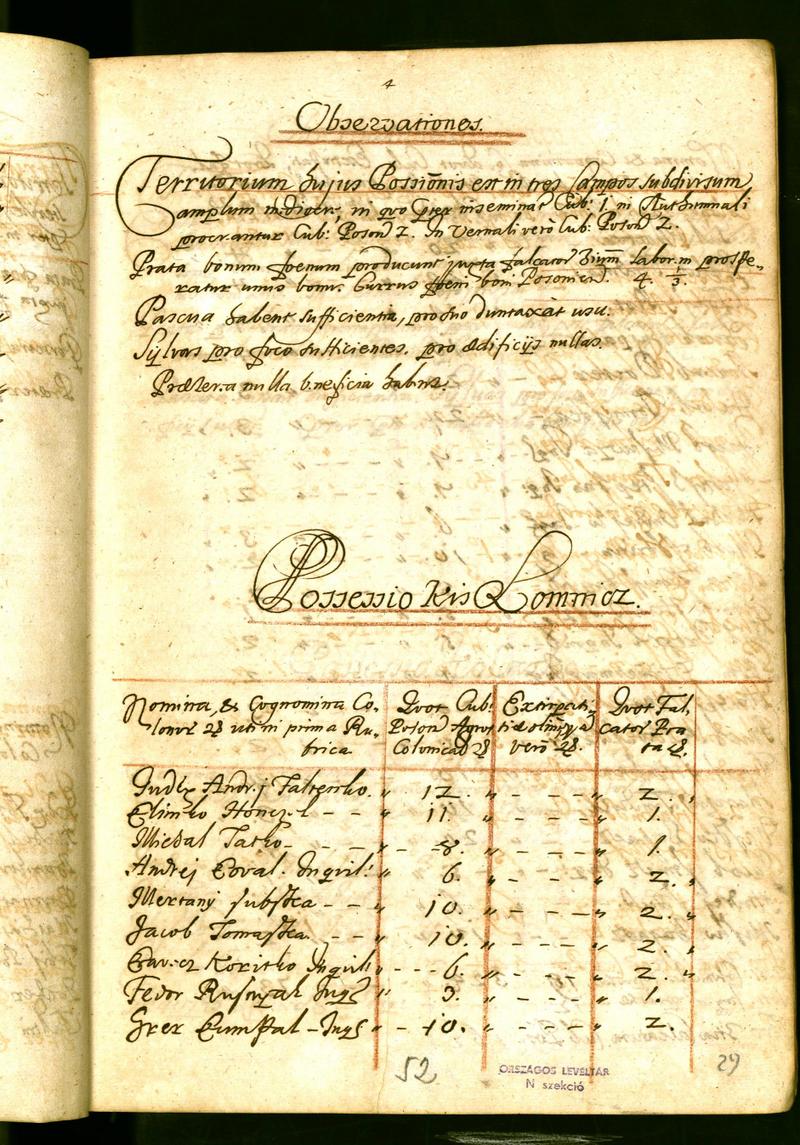 4
Observationes.
Territorium hujus Possionis est in tres Campos subdivisum
amplum mediocr, in quo inseminat Cub: 1. in Authumnali
procreantur Cub: Poson 2. In Vernali verò Cub: Poson 2.
Prata bonum foenum producunt juxta falcator labor.m prospe-
ratur unus bonus Currus foeni boni Posonien. 4. 1/3.
Pascua habent sufficientia, pro suo duntaxat usu.
Sylvas pro foco sufficientes. pro ædificijs nullas.
Præterea nulla beneficia habnt.
Possessio Kis Lomnicz.
Nomina, & Cognomina Co- Quot Cub: Extirpati- Quot Fal-
lonor uti in prima Ru- Poson Agror cator Pra-
brica Colonical verò ta
Judex Andrej Faltenko. " 12. " - - - " 2. "
Elimko Honez.l - - " 11. " - - - " 1.
Michal Tatko - - - 8. " - - - " 1.
Andrej Coval. Inquil: " 6. " - - - " 2. "
Mertany Subsska - - " 10. " - - - " 2. "
Jacob Tomasska. - - " 10. " - - - " 2. "
Koritko Inquil: - - - 6. " - - - " 2. "
Fedor Inq " 3. " - - - " 1.
Grex - Inq " - 10. " - - - " 2.
52
ORSZÁGOS LEVÉLTÁR
N szekció
29